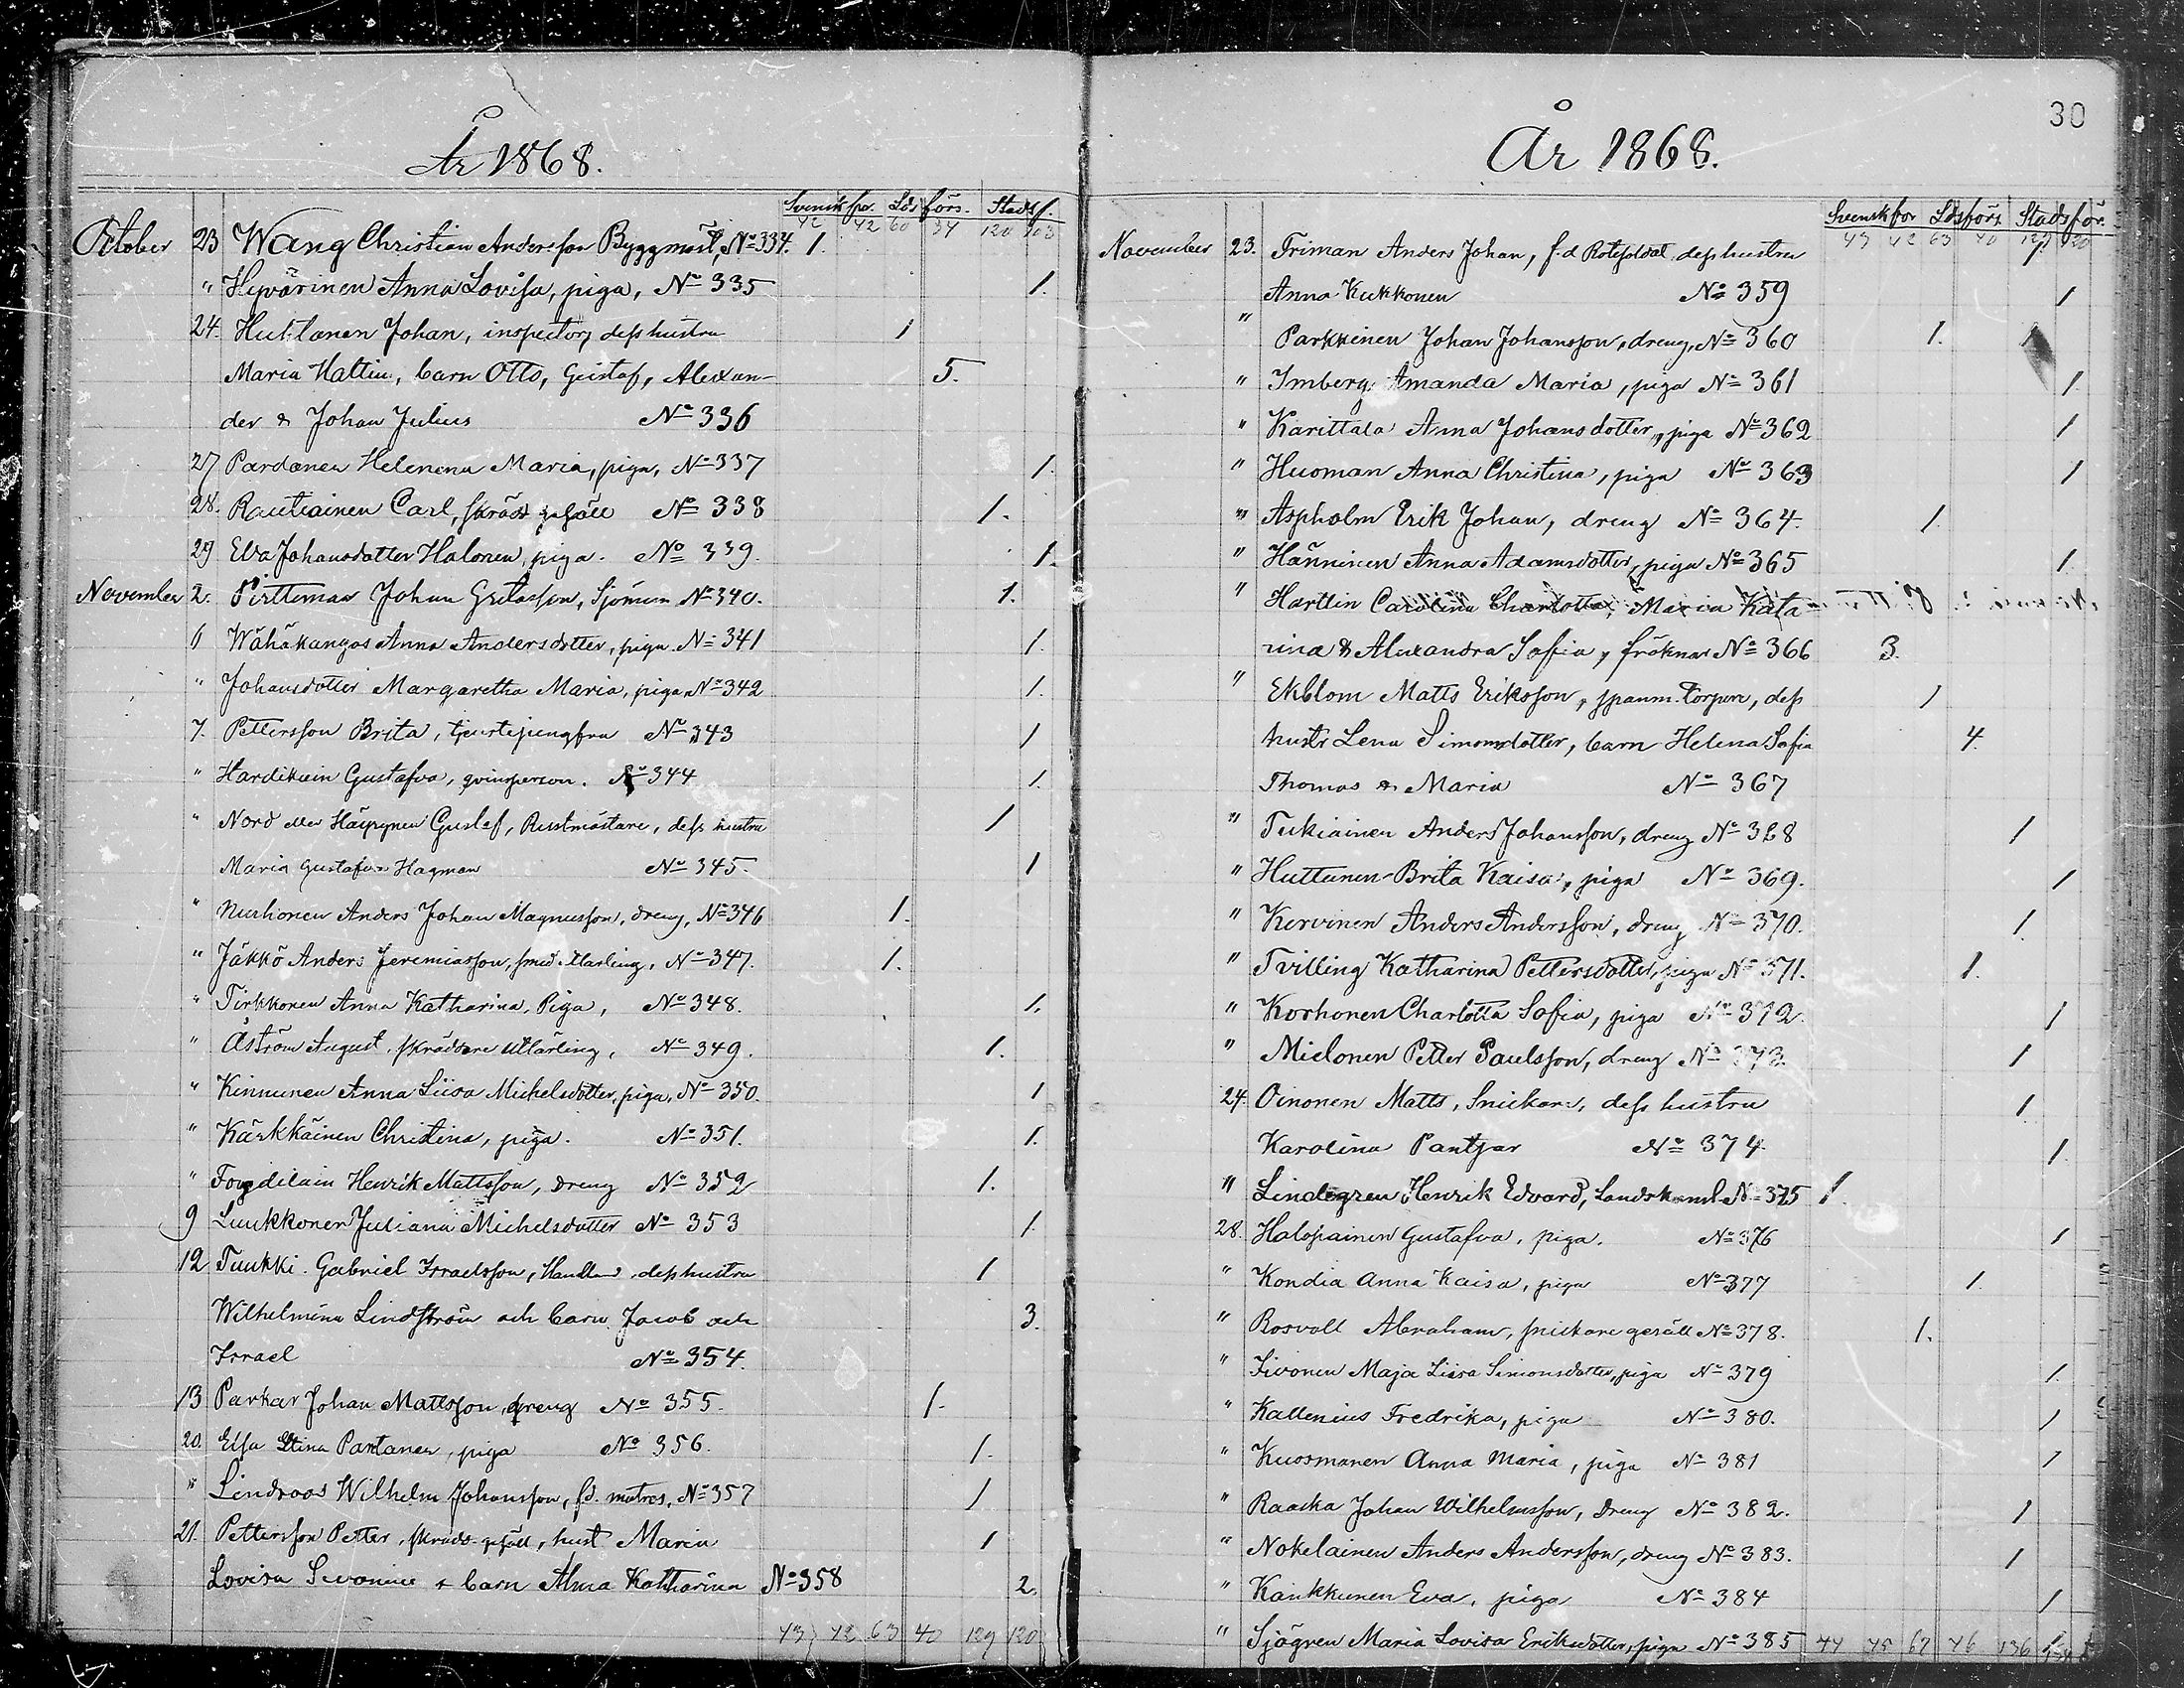 År 1868.
Svensk för. Lds förs. Stads f.
42 42 60 34 120 103
October 23 Wang Christian Andersson Byggmäst, No 334. 1.
" Hyvärinen Anna Lovisa, piga, No 335 1.
24. Huttanen Johan, inspector, dess hustru 1
Maria Haltin, barn Otto, Gustaf, Alexan- 5.
der & Johan Julius No 336
27 Pardanen Helenena Maria, piga, No 337 1.
28. Rautiainen Carl, skrädd gesäll No 338 1.
29 Eva Johansdotter Halonen, piga. No 339. 1.
November 2. Pirttimaa Johan Johan Sjöman No 340. 1.
6 Wähäkangas Anna Andersdotter, piga No 341 1.
" Johansdotter Margaretha Maria, piga, No 342 1.
7. Pettersson Brita, tjenstejungfru No 343 1
" Gustafva, qvinsperson. No 344 1.
" Nord eller Häyrynen Gustaf, Rustmästare, dess hustru 1
Maria Gustafva Hagman No 345. 1
" Nurhonen Anders Johan Magnusson, dreng, No 346 1.
" Jäkkö Anders Jeremiasson, smed. No 347. 1.
" Tirkkonen Anna Katharina, Piga, No 348. 1.
" Åström August, skräddare No 349. 1.
" Kinnunen Anna Liisa Michelsdotter, piga, No 350. 1
" Kärkkäinen Christina, piga. No 351. 1.
" Henrik Mattsson, dreng No 352 1.
9 Luukkonen Juliana Michelsdotter No 353 1.
12 Tuukki Gabriel Israelsson, Handl dess hustru 1
Wilhelmina Lindström och barn Jacob och 3.
Israel No 354.
13 Parkar Johan Mattsson, dreng No 355. 1.
20. Elsa Stina Partanen, piga No 356. 1.
" Lindroos Wilhelm Johansson, fd. matros, No 357 1
21. Pettersson Petter, skrädd. gesäll, hust Maria 1
Lovisa & barn Alma Katharina No 358 2.
43 42 63 40 129 120
30
År 1868.
Svensk för Ldsförs Stadsför.
43 42 63 40 129 120
November 23. Friman Anders Johan, f.d Rotesoldat dess hustru 1.
Anna Kukkonen No 359 1
" Parkkinen Johan Johansson, dreng, No 360 1.
" Imberg Amanda Maria, piga No 361 1.
" Karittala Anna Johansdotter, piga No 362 1
" Huoman Anna Christina, piga No 363 1
" Aspholm Erik Johan, dreng No 364. 1.
" Hänninen Anna Adamsdotter, piga No 365 1.
" Hartlin Carolina Charlotta, Maria Kata-
rina & Alexandra Sofia, fröknar No 366 3.
" Ekblom Matts Eriksson, spanm. Torpare, dess 1
hustr Lena Simonsdotter, barn Helena Sofia 4.
Thomas & Maria No 367
" Tukiainen Anders Johansson, dreng No 368 1
" Huttunen Brita Kaisa, piga No 369. 1
" Kervinen Anders Andersson, dreng No 370. 1.
" Tvilling Katharina Pettersdotter, piga No 371. 1.
" Korhonen Charlotta Sofia, piga No 372. 1
" Mielonen Petter Paulsson, dreng No 373. 1
24. Oinonen Matts, Snickare, dess hustru 1.
Karolina Pantsar No 374. 1.
" Lindegren Henrik Edvard, Landskaml. No 375 1.
28. Halopainen Gustafva, piga. No 376 1
" Kondia Anna Kaisa, piga No 377 1.
" Rosvall Abraham, snickare gesäll No 378. 1.
" Sivonen Maja Liisa Simonsdotter, piga No 379 1.
" Kallenius Fredrika, piga No 380. 1
" Kuosmanen Anna Maria, piga No 381 1
" Raaska Johan Wilhelmsson, dreng No 382. 1
" Nokelainen Anders Andersson, dreng No 383. 1
" Kankkunen Eva, piga No 384 1
" Sjögren Maria Lovisa Eriksdotter, piga No 385 44 45 67 46 136